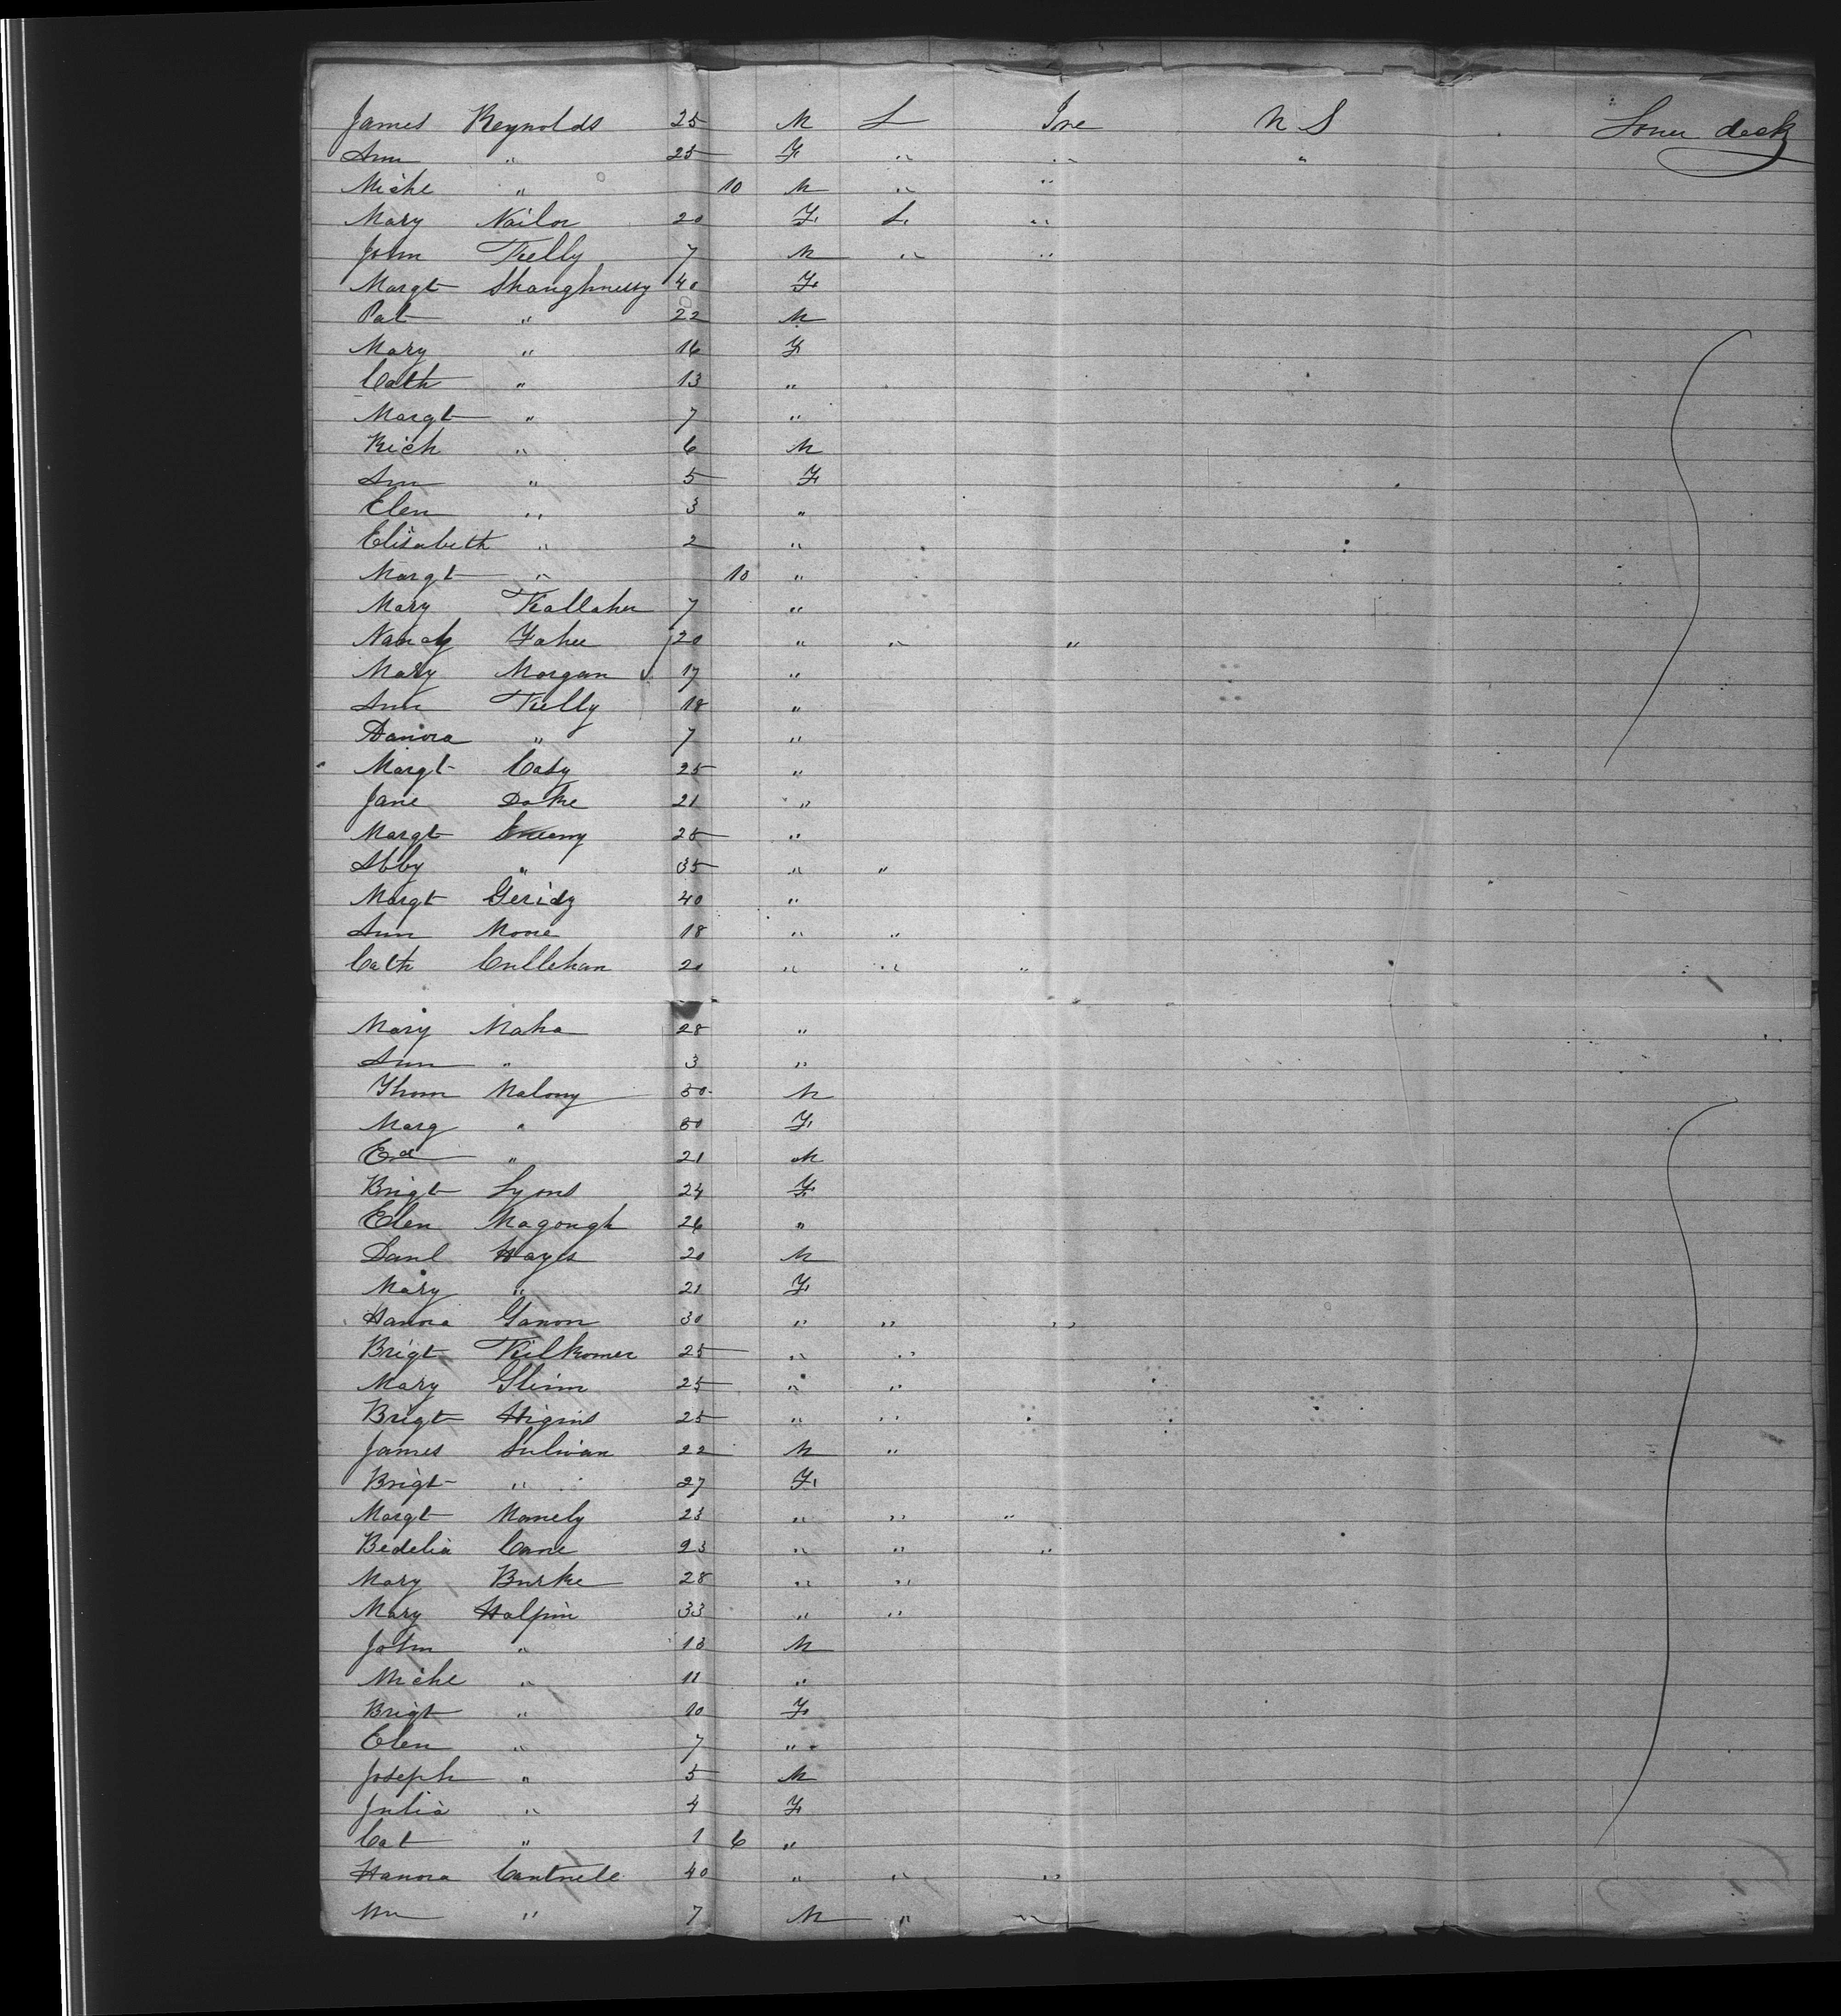 James Reynolds 25 M L Ire N S Lower deck
Ann " 25 F " " "
Miche " 10 M " "
Mary Nailor 20 F L "
John Kelly 7 M " "
Margt Shaughnessy 40 F
Pat " 22 M
Mary " 16 F
Cath " 13 "
Margt " 7 "
Rich " 6 M
Ann " 5 F
Elen " 3 "
Elisabeth " 2 "
Margt " 10 "
Mary Kallaher 7 "
Nancy Fahee 20 " " "
Mary Morgan 17 "
Ann Kelly 18 "
Hanora " 7 "
Margt Casy 25 "
Jane Dake 21 "
Margt 25 "
Abby " 35 " "
Margt Geridy 40 "
Ann Mone 18 " "
Cath Cullehan 20 " " "
Mary Maha 28 "
Ann " 3 "
Thom Malony 50 M
Marg " 50 F
Ed " 21 M
Brigt Lyons 24 F
Elen Magough 26 "
Danl Hayes 20 M
Mary " 21 F
Hanora Ganon 30 " " "
Brigt Kilkomer 25 " "
Mary Glinn 25 " "
Brigt Higins 25 " "
James Sulivan 22 M "
Brigt " 27 F
Margt Manely 23 " " "
Bedelia Cane 23 " " "
Mary Burke 28 " "
Mary Halpin 33 " "
John " 13 M
Miche " 11 "
Brigt " 10 F
Elen " 7 "
Joseph " 5 M
Julia " 4 F
Cat " 1 6 "
Hanora Cantrele 40 " " "
Wm " 7 M " "